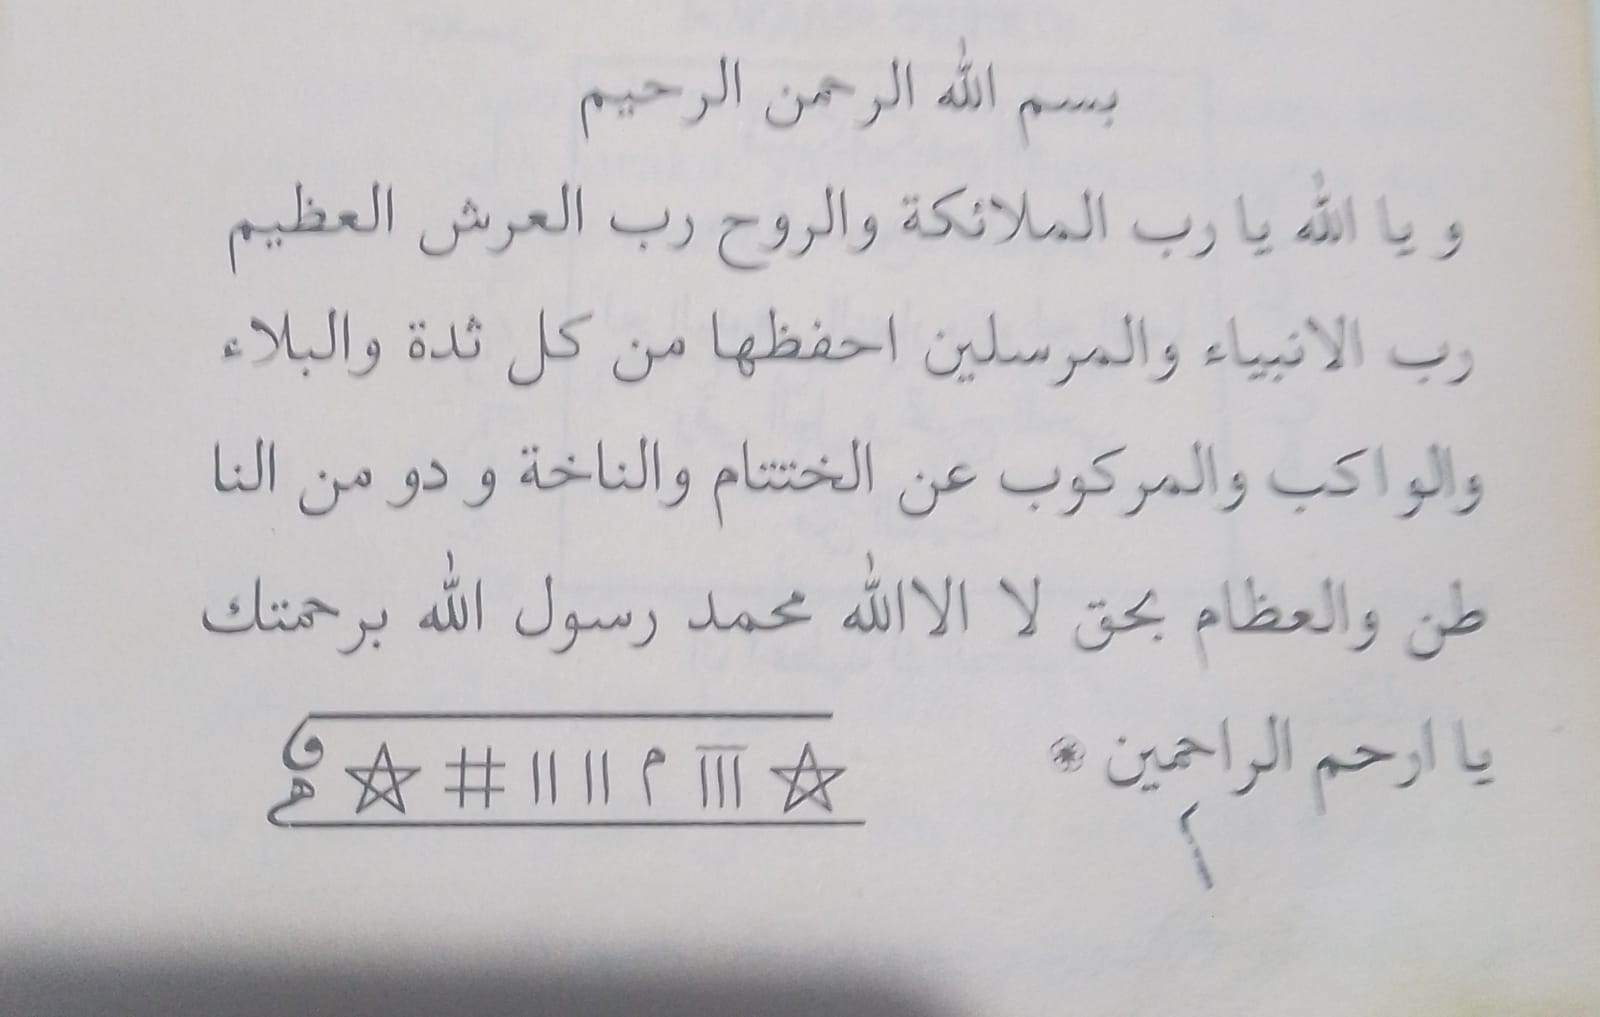 بسم الله الرحمن الرحيم
و يا الله يا رب الملائكة والروح رب العرش العظيم
رب الانبياء والمرسلين احفظها من كل ثدة والبلاء
والواكب والمركوب عن الختتنام والناخة و دو من النا
طن والعظام بحق لا الاالله محمد رسول الله برحمتك
يا ارحم الراحمين